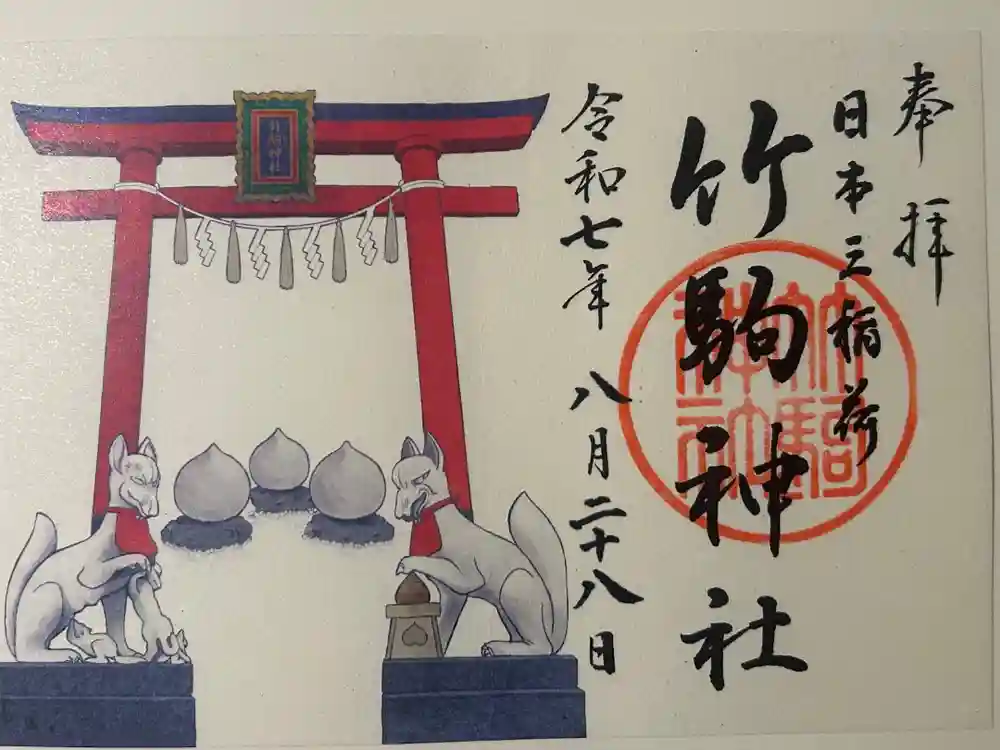 奉拝
日本三稲荷
竹駒神社
竹駒神社
令和七年 八月二十八日
竹駒神社